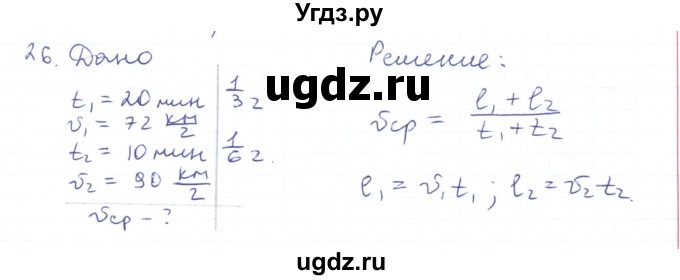 Угdz.ру
26. Дано
t₁ = 20 мин | 1/3 г
v₁ = 72 км/г
t₂ = 10 мин | 1/6 г.
v₂ = 90 км/г
vср - ?
Решение:
vср = (l₁ + l₂)/(t₁ + t₂)
l₁ = v₁t₁; l₂ = v₂t₂.
ugdz.ru
ugdz.ru